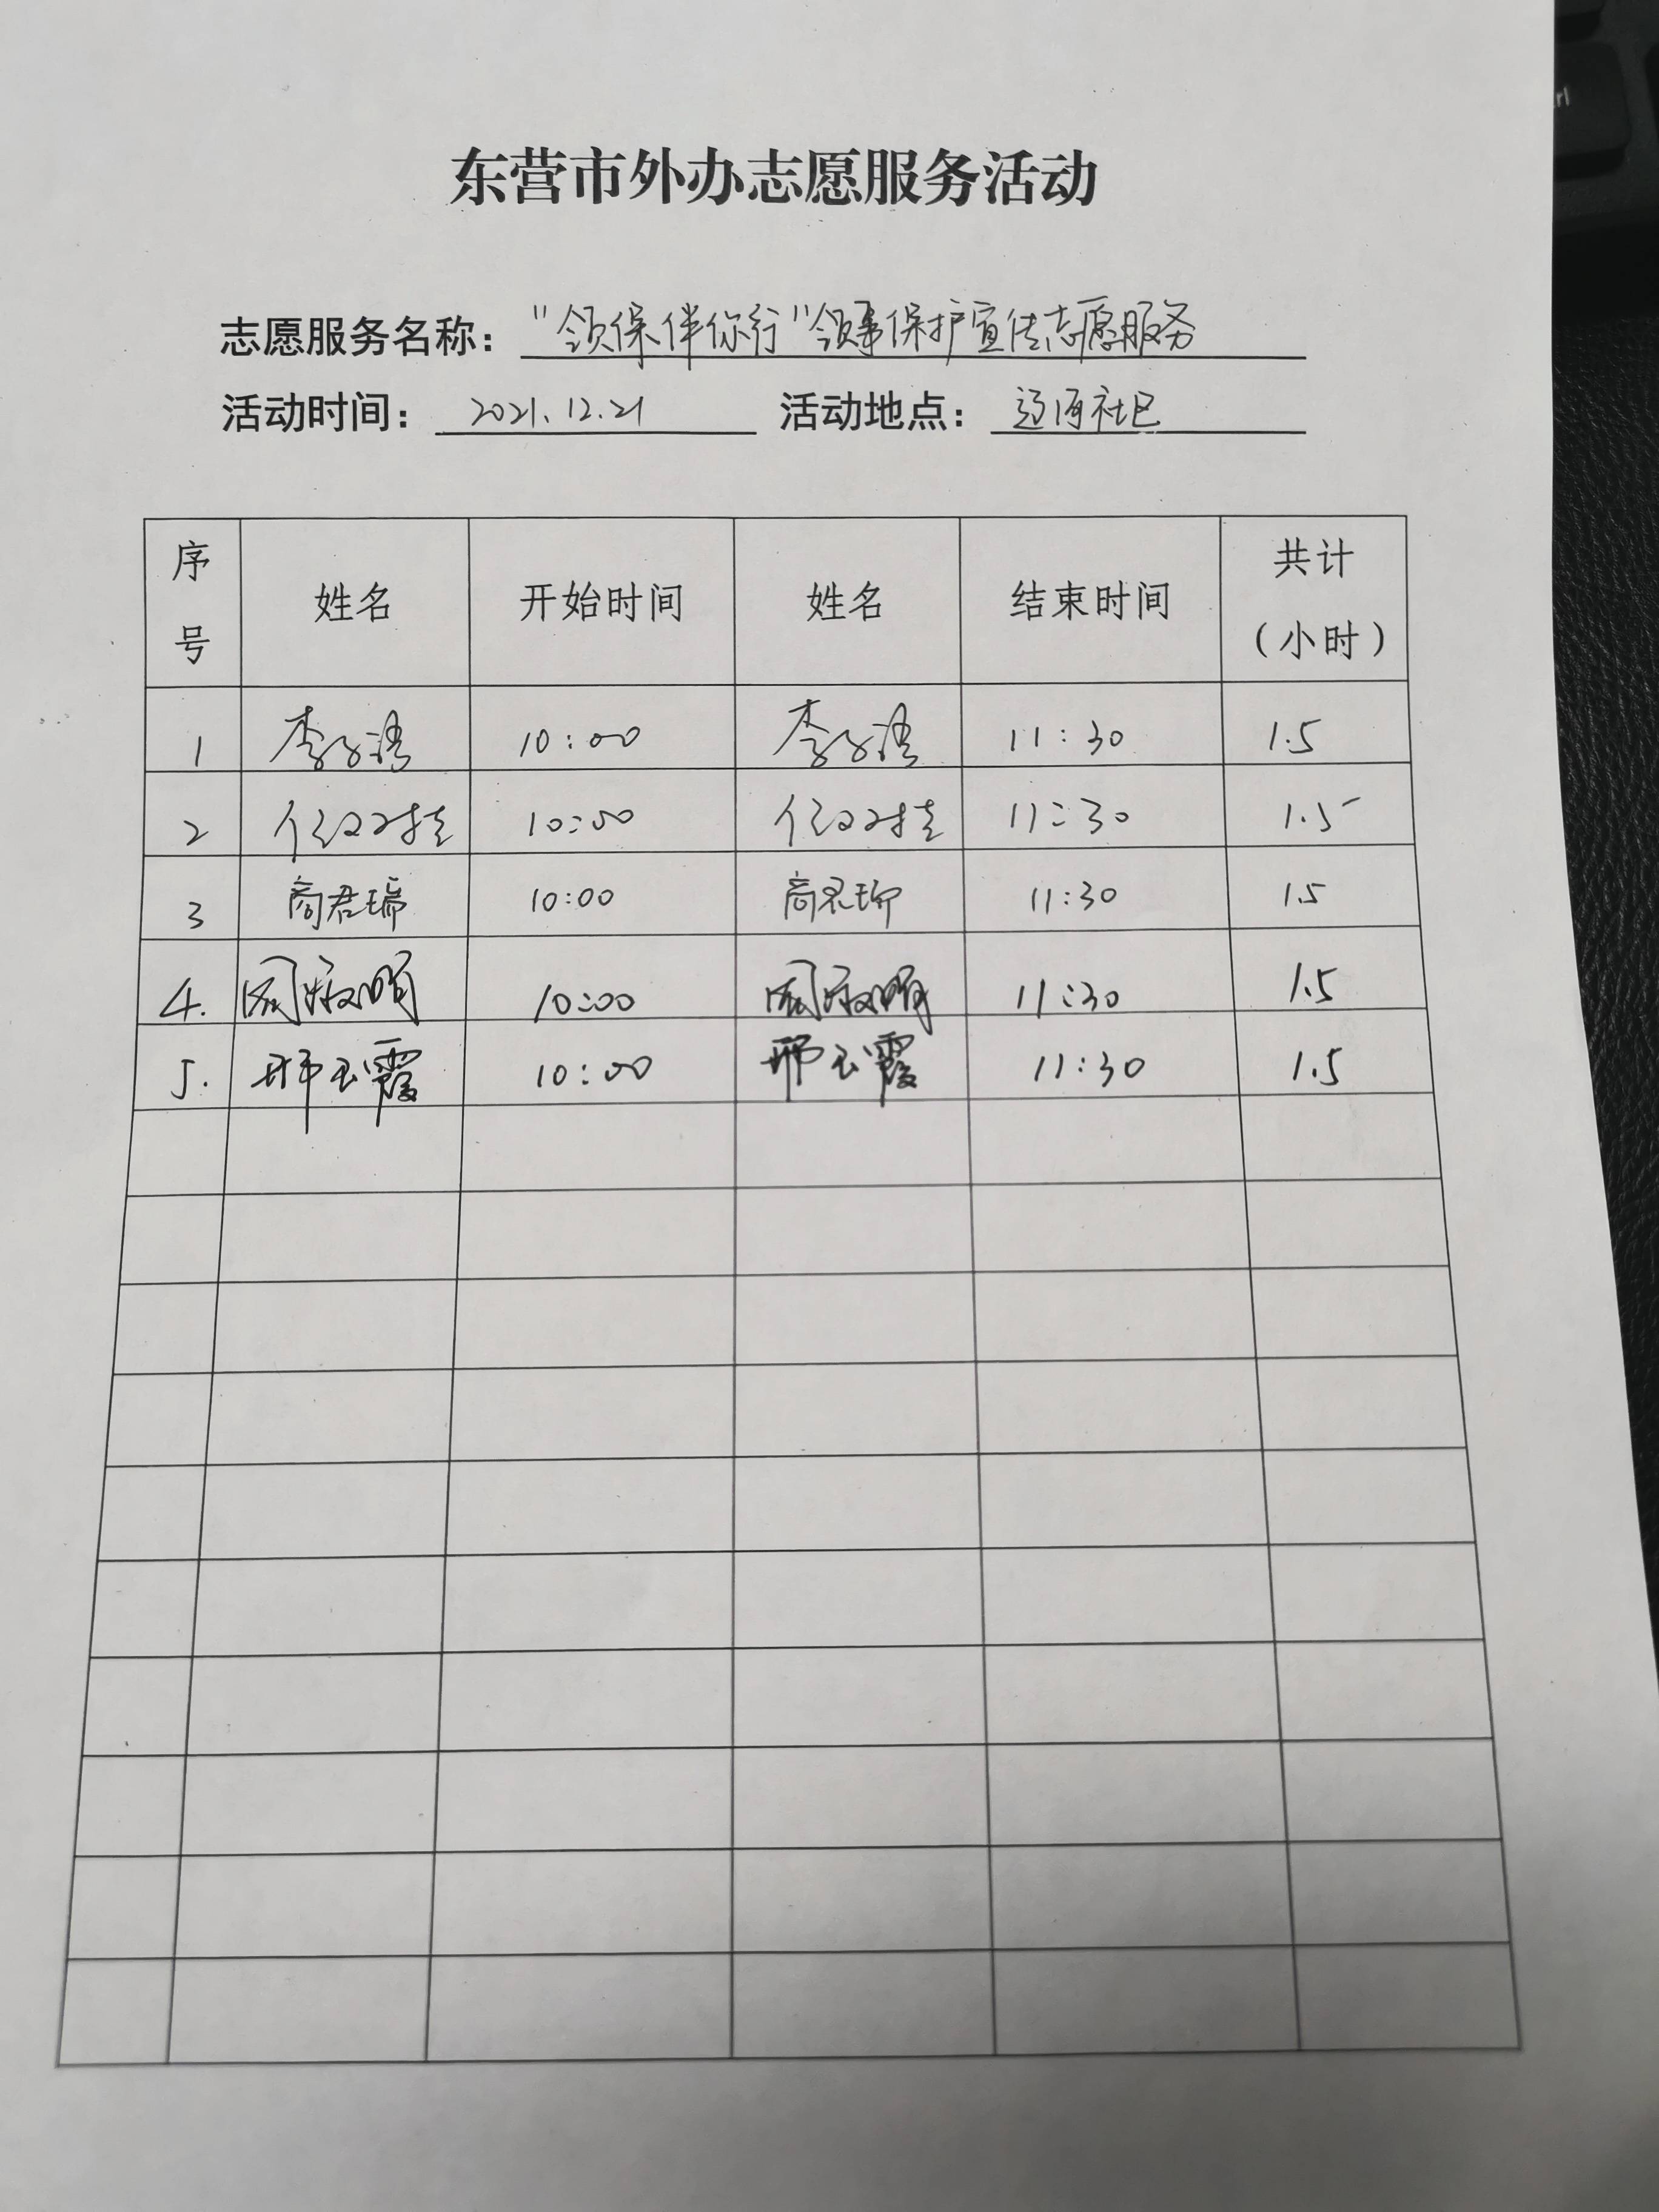 东营市外办志愿服务活动
志愿服务名称："领保伴你行"领事保护宣传志愿服务
活动时间：2021.12.21 活动地点：辽河社区
序号 姓名 开始时间 姓名 结束时间 共计（小时）
1 10:00 11:30 1.5
2 10:00 11:30 1.5
3 商君瑞 10:00 商君瑞 11:30 1.5
4. 10:00 11:30 1.5
5. 邢玉霞 10:00 邢玉霞 11:30 1.5